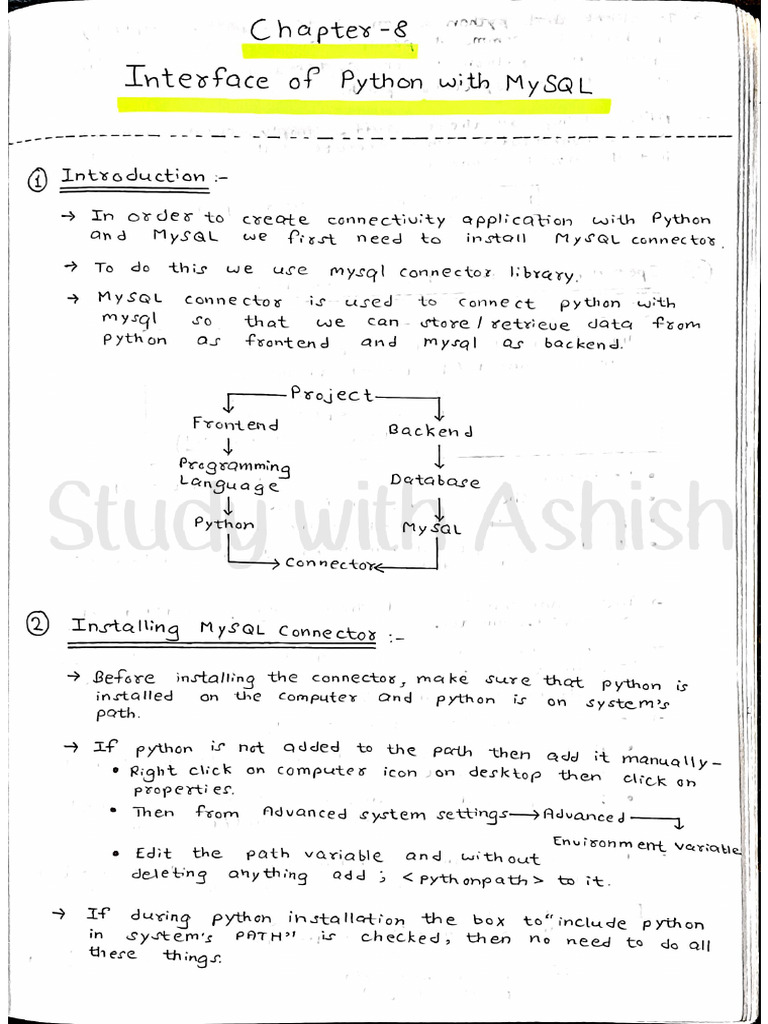 Chapter-8
Interface of Python with MySQL
① Introduction :-
→ In order to create connectivity application with Python
and MySQL we first need to install MySQL connector.
→ To do this we use mysql connector library.
→ MySQL connector is used to connect python with
mysql so that we can store/retrieve data from
python as frontend and mysql as backend.
Project
Frontend
Backend
Programming
Language
Database
Python
MySQL
Connector
Study with Ashish
② Installing MySQL Connector :-
→ Before installing the connector, make sure that python is
installed on the computer and python is on system's
path.
→ If python is not added to the path then add it manually-
• Right click on computer icon on desktop then click on
properties.
• Then from Advanced system settings → Advanced
Environment variable
• Edit the path variable and without
deleting anything add ; <pythonpath> to it.
→ If during python installation the box to "include python
in system's PATH" is checked, then no need to do all
these things.